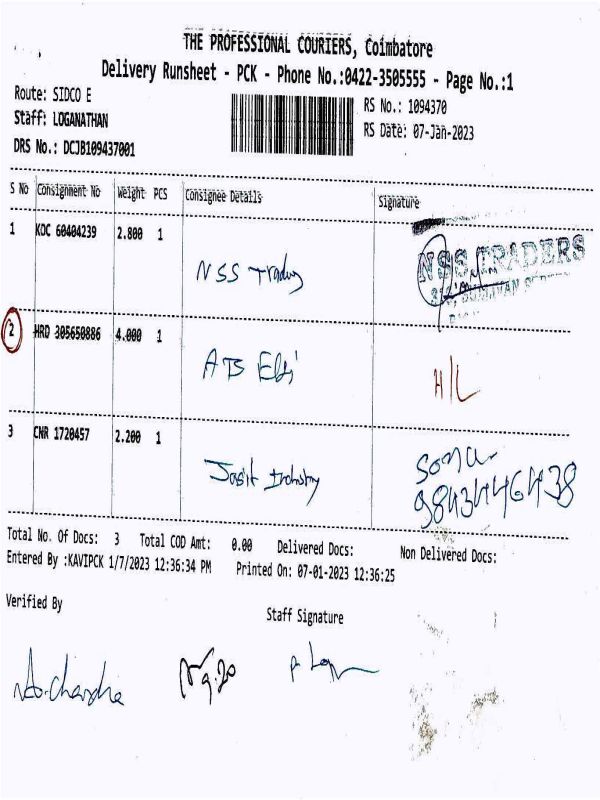 THE PROFESSIONAL COURIERS, Coimbatore
Delivery Runsheet - PCK - Phone No.:0422-3505555 - Page No.:1
Route: SIDCO E
Staff: LOGANATHAN
DRS No.: DCJB109437001
RS No.: 1094370
RS Date: 07-Jan-2023
S No Consignment No Weight PCS Consignee Details Signature
1 KDC 60404239 2.800 1 NSS Trading
NSS TRADERS
2 HRD 305650886 4.000 1 H/L
3 CNR 1720457 2.200 1
9843446438
Total No. Of Docs: 3 Total COD Amt: 0.00 Delivered Docs: Non Delivered Docs:
Entered By :KAVIPCK 1/7/2023 12:36:34 PM Printed On: 07-01-2023 12:36:25
Verified By Staff Signature